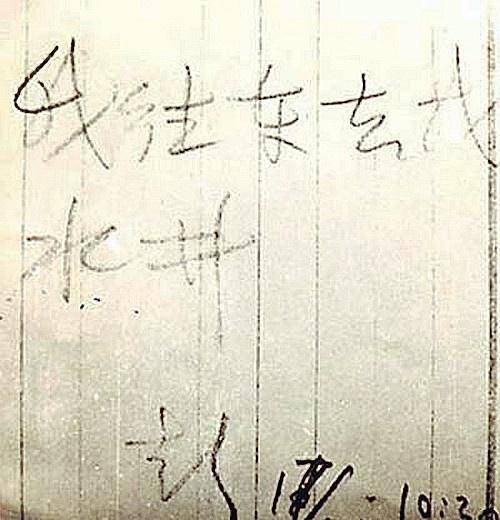 我往东去找
水井
彭 10:30